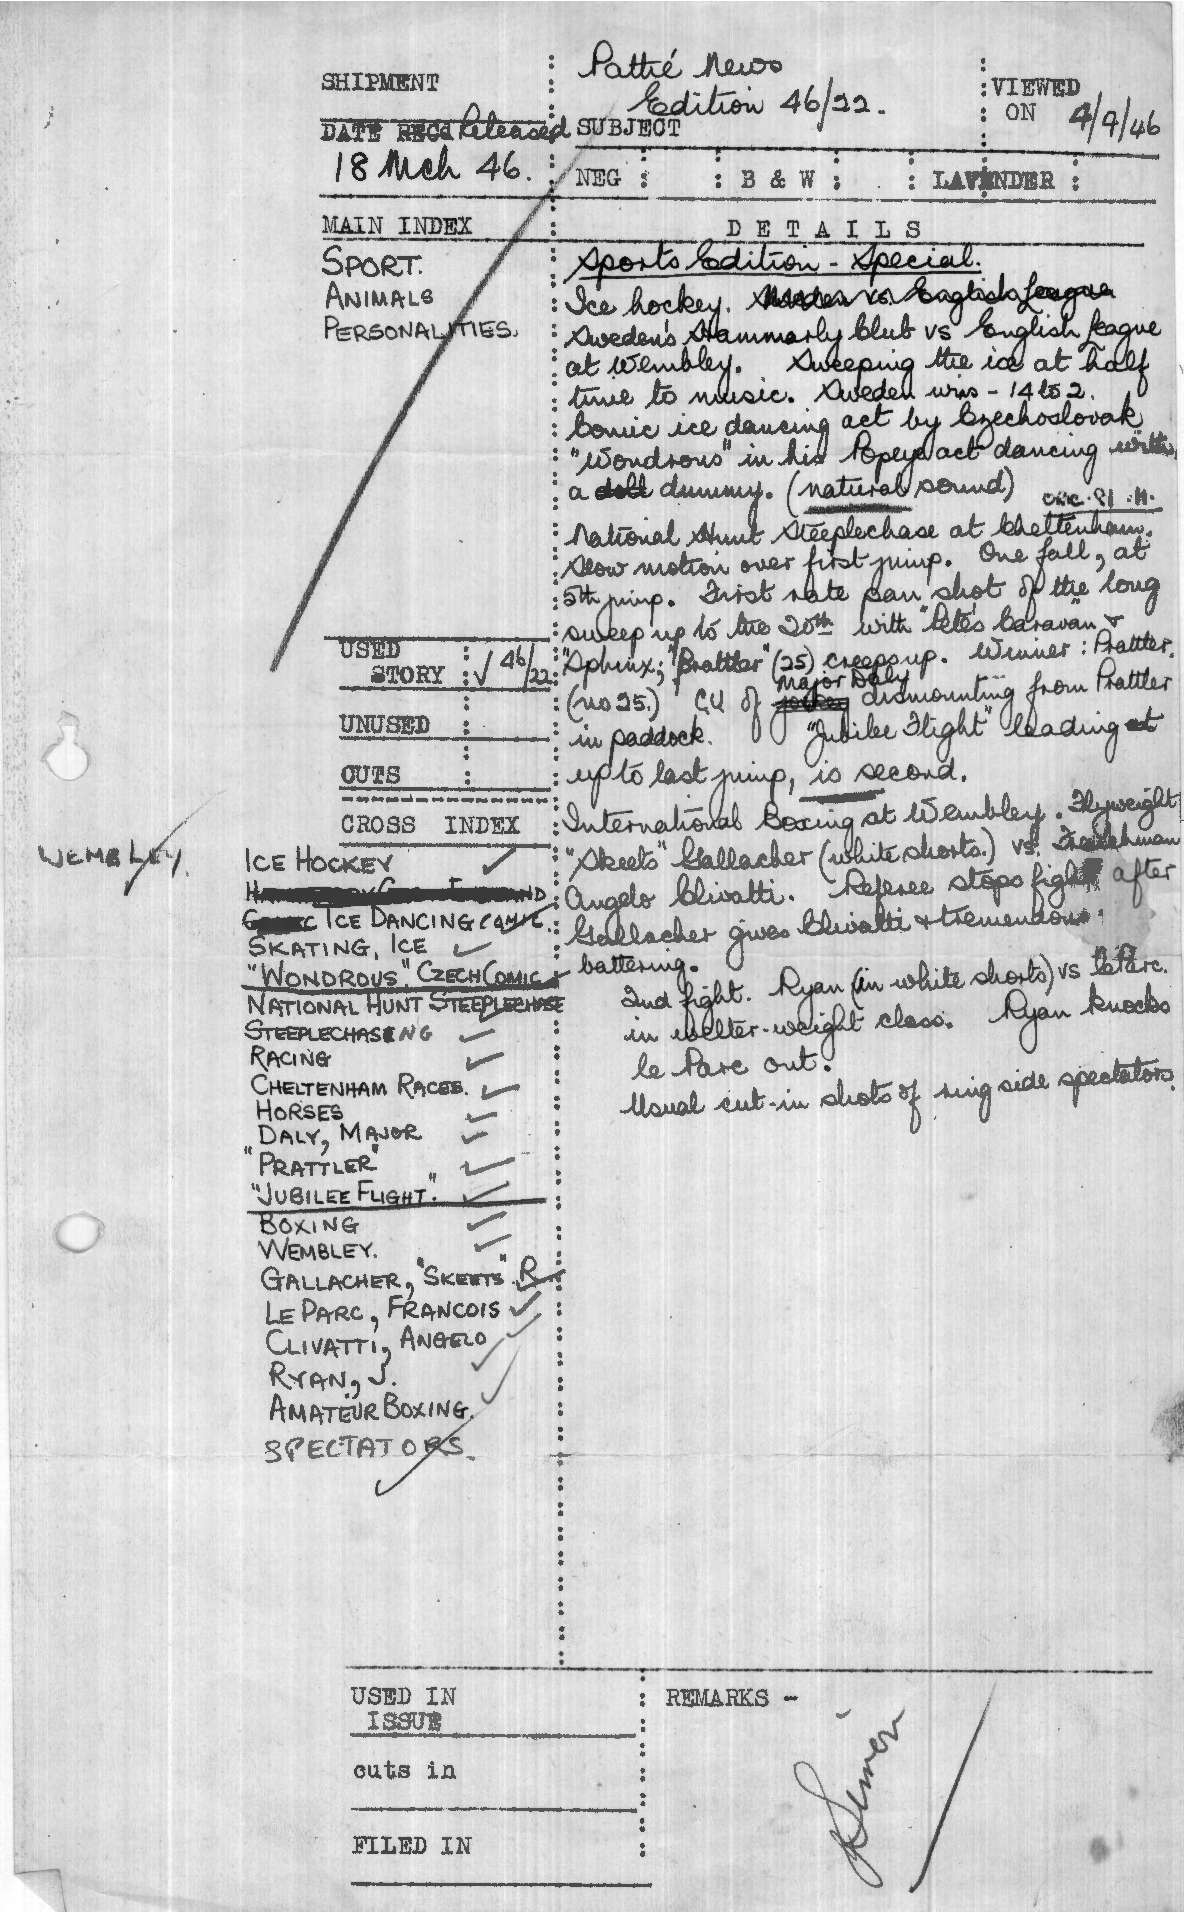 SHIPMENT
Pathé News
Edition 46/22.
VIEWED
ON 4/9/46
DATE REC'd Released
18 Mch 46.
SUBJECT
NEG : : B & W : : LAVENDER :
MAIN INDEX
DETAILS
SPORT.
ANIMALS
PERSONALITIES.
Sports Edition - Special.
Ice hockey. Sweden vs. English League
Sweden's Stammarly Club vs English League
at Wembley. Sweeping the ice at half
time to music. Sweden wins - 14 to 2.
Comic ice dancing act by Czechoslovak
"Wondrous" in his Popeye act dancing with
a doll dummy. (natural sound)
National Hunt Steeplechase at Cheltenham.
Slow motion over first jump. One fall, at
5th jump. First rate pan shot of the long
sweep up to the 20th with "Pete's Caravan" &
"Sphinx; "Prattler" (25) creeps up. Winner: Prattler.
(no 25.) C.U of jockey Major Daly dismounting from Prattler
in paddock. "Jubilee Flight" leading at
up to last jump, is second.
International Boxing at Wembley. Flyweight
"Skeets" Gallacher (white shorts.) vs. Frenchman
Angelo Clivatti. Referee stops fight after
Gallacher gives Clivatti a tremendous
battering.
2nd fight. Ryan (in white shorts) vs le Parc.
in welter-weight class. Ryan knocks
le Parc out.
Usual cut-in shots of ring side spectators.
USED
STORY : √ 46/22
UNUSED
CUTS
CROSS INDEX
WEMBLEY.
ICE HOCKEY
ICE DANCING COMIC.
SKATING, ICE
"WONDROUS", CZECH COMIC
NATIONAL HUNT STEEPLECHASE
STEEPLECHASING
RACING
CHELTENHAM RACES.
HORSES
DALY, MAJOR
"PRATTLER"
"JUBILEE FLIGHT".
BOXING
WEMBLEY.
GALLACHER, "SKEETS". R
LE PARC, FRANCOIS
CLIVATTI, ANGELO
RYAN, J.
AMATEUR BOXING.
SPECTATORS.
USED IN
ISSUE
cuts in
FILED IN
REMARKS -